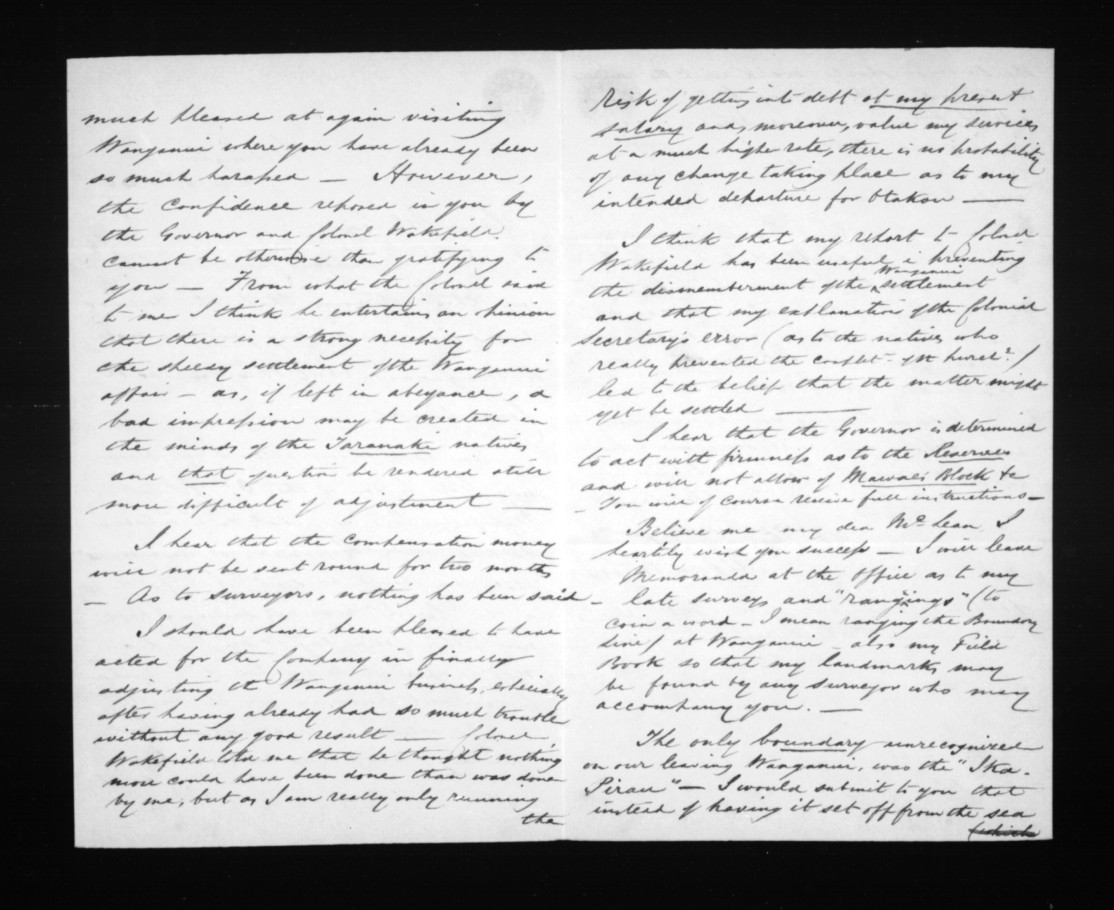 much pleased at again visiting
Wanganui where you have already been
so much harassed — However,
the confidence reposed in you by
the Governor and Colonel Wakefield
cannot be otherwise than gratifying to
you — From what the Colonel said
to me I think he entertains an opinion
that there is a strong necessity for
the speedy settlement of the Wanganui
affair — as, if left in abeyance, a
bad impression may be created in
the minds of the Taranaki natives
and that question be rendered still
more difficult of adjustment —
I hear that the compensation money
will not be sent round for two months
— As to surveyors, nothing has been said —
I should have been pleased to have
acted for the Company in finally
adjusting the Wanganui business, especially
after having already had so much trouble
without any good result — Colonel
Wakefield told me that he thought nothing
more could have been done than was done
by me, but as I am really only running
the
risk of getting into debt at my present
salary and, moreover, value my services
at a much higher rate, there is no probability
of any change taking place as to my
intended departure for Otakou —
I think that my report to Colonel
Wakefield has been useful in preventing
the dismemberment of the Wanganui settlement
and that my explanation of the Colonial
Secretary's error (as to the natives who
really prevented the complet.n of the purch.e)
led to the belief that the matter might
yet be settled —
I hear that the Governor is determined
to act with firmness as to the Reserves
and will not allow of Mawae's Block &c
— You will of course receive full instructions —
Believe me my dear McLean I
heartily wish you success — I will leave
Memoranda at the office as to my
late surveys and "rangings" (to
coin a word — I mean ranging the Boundary
line) at Wanganui also my Field
Book so that my landmarks may
be found by any surveyor who may
accompany you. —
The only boundary unrecognized
on our leaving Wanganui, was the "Ika-
Pirau" — I would submit to you that
instead of having it set off from the sea
(which